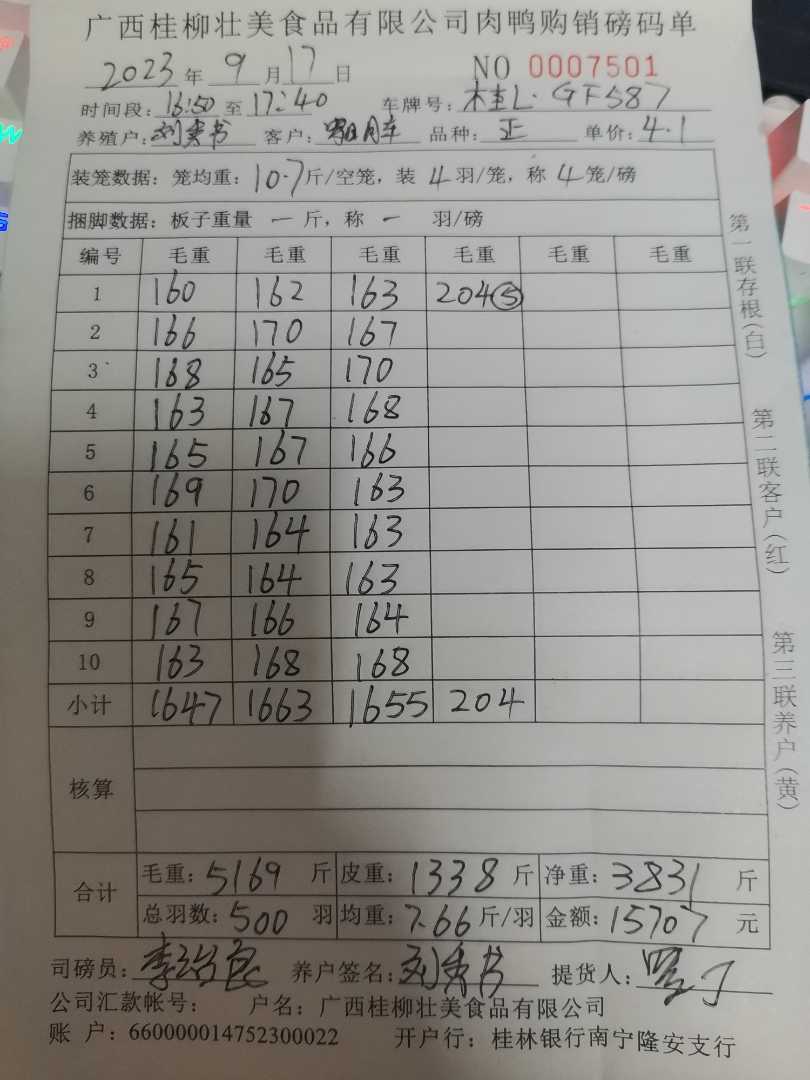 广西桂柳壮美食品有限公司肉鸭购销磅码单
2023 年 9 月 17 日 NO 0007501
时间段: 16:50 至 17:40 车牌号: 桂L·GF587
养殖户: 刘秀书 客户: 品种: 正 单价: 4.1
装笼数据: 笼均重: 10.7 斤/空笼, 装 4 羽/笼, 称 4 笼/磅
捆脚数据: 板子重量 一 斤, 称 一 羽/磅
编号 毛重 毛重 毛重 毛重 毛重 毛重
1 160 162 163 204⑤
2 166 170 167
3 168 165 170
4 163 167 168
5 165 167 166
6 169 170 163
7 161 164 163
8 165 164 163
9 167 166 164
10 163 168 168
小计 1647 1663 1655 204
核算
合计 毛重: 5169 斤 皮重: 1338 斤 净重: 3831 斤
总羽数: 500 羽 均重: 7.66 斤/羽 金额: 15707 元
司磅员: 养户签名: 刘秀书 提货人:
公司汇款帐号: 户名: 广西桂柳壮美食品有限公司
账 户: 660000014752300022 开户行: 桂林银行南宁隆安支行
第一联存根(白)
第二联客户(红)
第三联养户(黄)